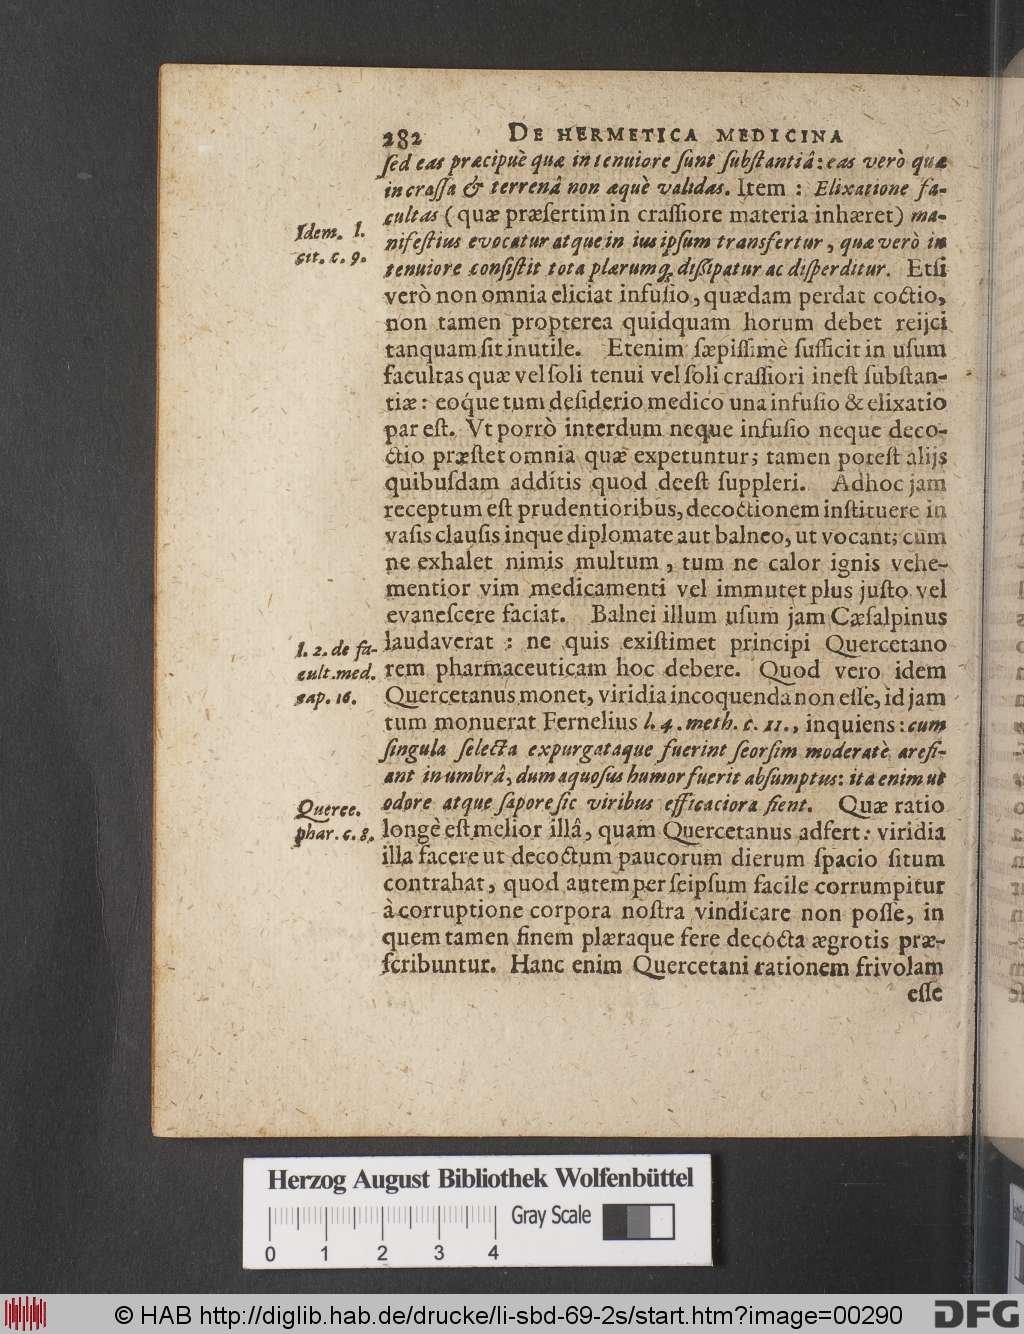 282 DE HERMETICA MEDICINA
ſed eas præcipuè quæ in tenuiore ſunt ſubſtantiâ: eas verò quæ
in craſſa & terrenâ non æquè validas. Item : Elixatione fa-
cultas (quæ præſertim in craſſiore materia inhæret) ma-
Idem. l.
nifeſtius evocatur atque in ius ipſum transfertur, quæ verò in
cit. c. 9.
tenuiore conſiſtit tota plærumq́; diſſipatur ac diſperditur. Etſi
verò non omnia eliciat infuſio, quædam perdat coctio,
non tamen propterea quidquam horum debet reijci
tanquam ſit inutile. Etenim ſæpiſſimè ſufficit in uſum
facultas quæ vel ſoli tenui vel ſoli craſſiori ineſt ſubſtan-
tiæ: eoq́ue tum deſiderio medico una infuſio & elixatio
par eſt. Vt porrò interdum neque infuſio neque deco-
ctio præſtet omnia quæ expetuntur; tamen poteſt alijs
quibuſdam additis quod deeſt ſuppleri. Adhoc jam
receptum eſt prudentioribus, decoctionem inſtituere in
vaſis clauſis inque diplomate aut balneo, ut vocant; cùm
ne exhalet nimis multum, tum ne calor ignis vehe-
mentior vim medicamenti vel immutet plus juſto vel
evaneſcere faciat. Balnei illum uſum jam Cæſalpinus
l. 2. de fa-
laudaverat : ne quis exiſtimet principi Quercetano
cult. med.
rem pharmaceuticam hoc debere. Quod vero idem
cap. 16.
Quercetanus monet, viridia incoquenda non eſſe, id jam
tum monuerat Fernelius l. 4. meth. c. 11., inquiens: cum
ſingula ſelecta expurgataque fuerint ſeorſim moderatè arefi-
ant in umbrâ, dum aquoſus humor fuerit abſumptus: ita enim ut
Querce.
odore atque ſapore ſic viribus efficaciora fient. Quæ ratio
phar. c. 8.
longè eſt melior illâ, quam Quercetanus adfert: viridia
illa facere ut decoctum paucorum dierum ſpacio ſitum
contrahat, quod autem per ſeipſum facile corrumpitur
à corruptione corpora noſtra vindicare non poſſe, in
quem tamen finem plæraque fere decocta ægrotis præ-
ſcribuntur. Hanc enim Quercetani rationem frivolam
eſſe
Herzog August Bibliothek Wolfenbüttel
Gray Scale
0 1 2 3 4
© HAB http://diglib.hab.de/drucke/li-sbd-69-2s/start.htm?image=00290
DFG